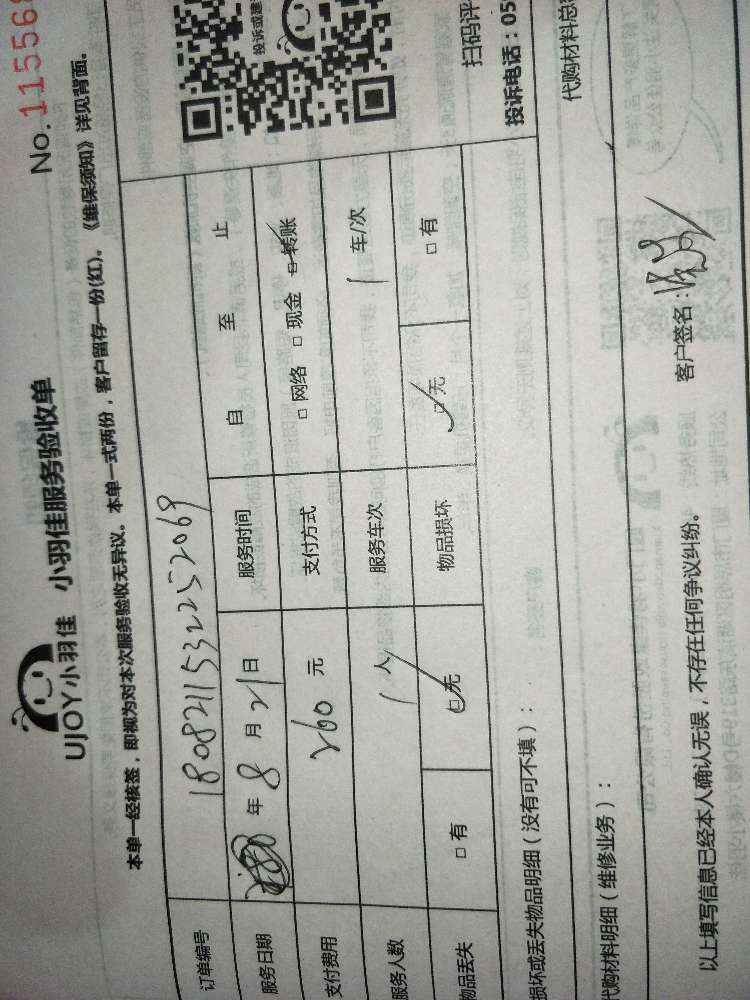 No. 11556
UJOY小羽佳 小羽佳服务验收单
本单一经核签，即视为对本次服务验收无异议。本单一式两份，客户留存一份(红)。《维保须知》详见背面。
订单编号 1808211532252069
服务日期 年 8 月 21 日 服务时间 自 至 止
支付费用 260 元 支付方式 □ 网络 □ 现金 □ 转账
服务人数 1 人 服务车次 1 车/次
物品丢失 □ 有 □ 无 物品损坏 □ 无 □ 有
损坏或丢失物品明细（没有可不填）：
代购材料明细（维修业务）： 代购材料总
以上填写信息已经本人确认无误，不存在任何争议纠纷。 客户签名：
投诉或建
扫码评
投诉电话：05